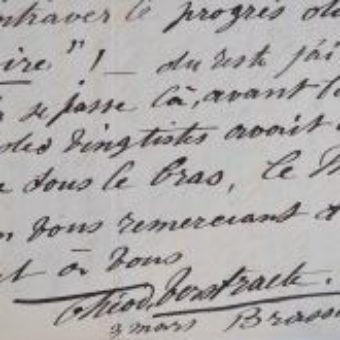 entraver le progrès de
oire" ! — du reste j'ai
se passe là, avant l
des vingtistes avait
sous le bras, le
vous remerciant
t à vous
Théod. Verstraete.
3 mars Brass